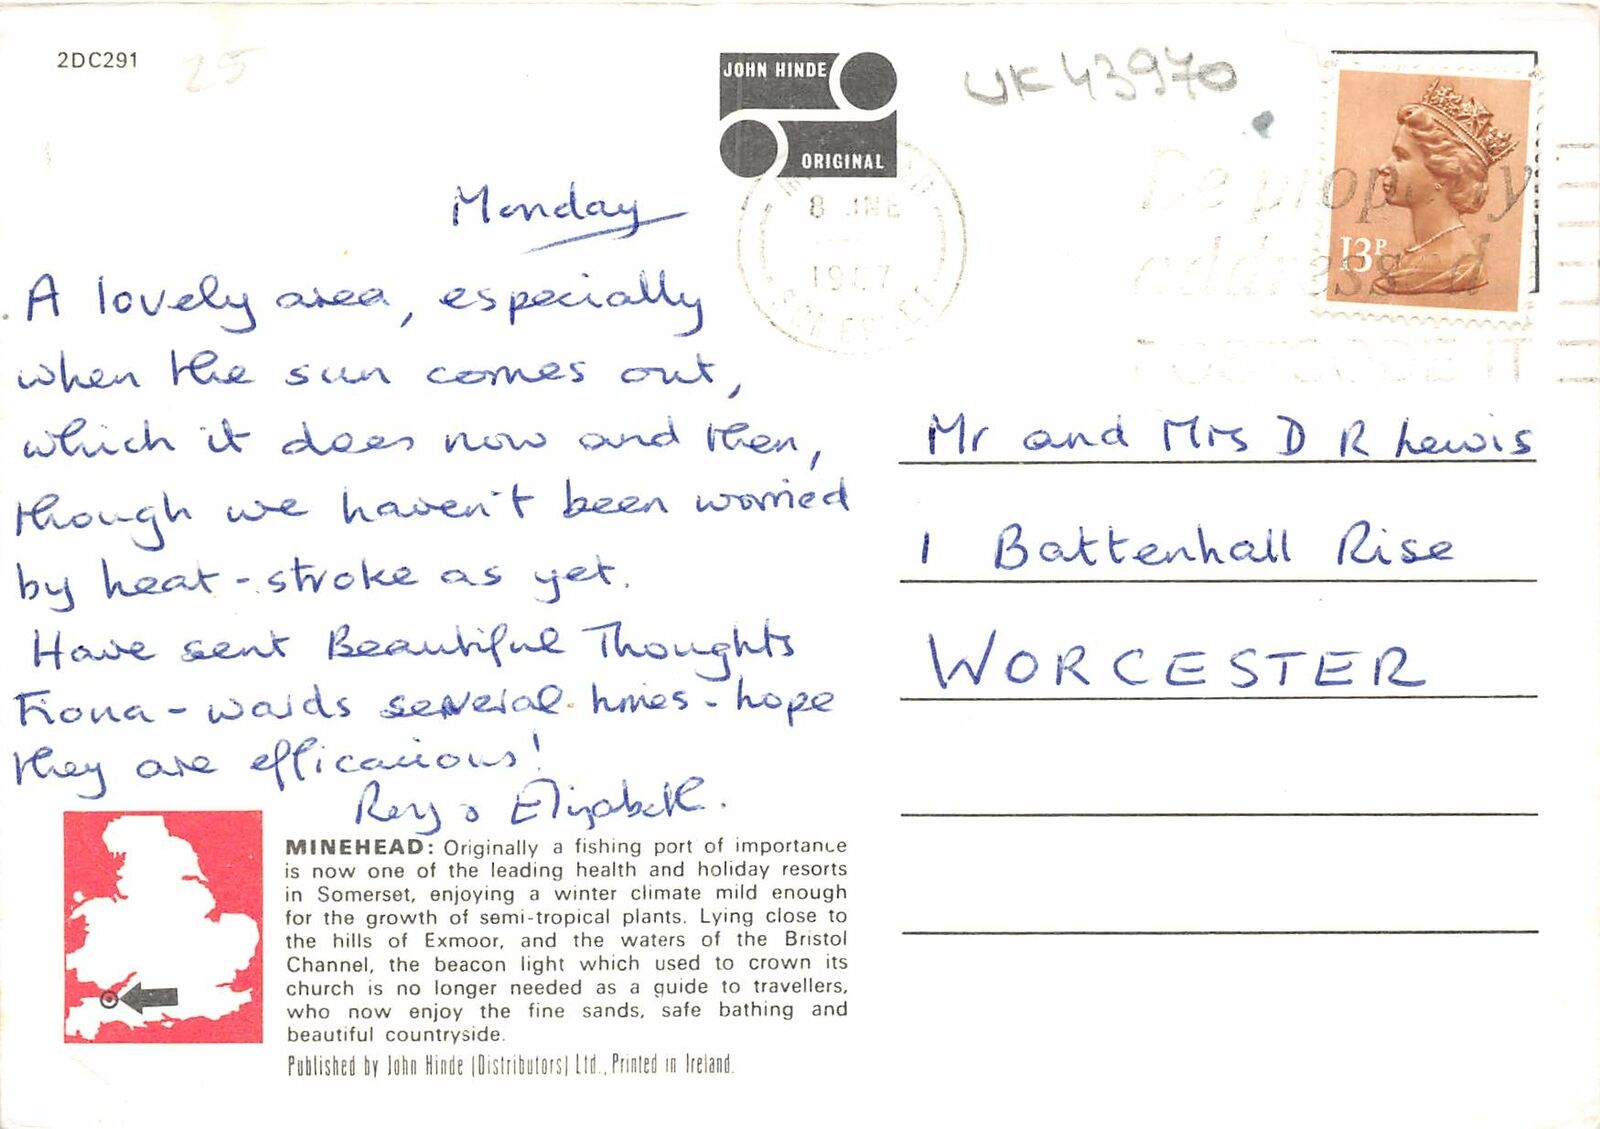 2DC291
25
JOHN HINDE
ORIGINAL
UK43970
8 JNE
1987
SOMERSET
Be properly
addressed
POSTCODE IT
13P
Monday
A lovely area, especially
when the sun comes out,
which it does now and then,
though we haven't been worried
by heat-stroke as yet.
Have sent Beautiful Thoughts
Fiona-wards several times - hope
they are efficacious!
Roy & Elizabeth.
Mr and Mrs D R Lewis
1 Battenhall Rise
WORCESTER
MINEHEAD: Originally a fishing port of importance
is now one of the leading health and holiday resorts
in Somerset, enjoying a winter climate mild enough
for the growth of semi-tropical plants. Lying close to
the hills of Exmoor, and the waters of the Bristol
Channel, the beacon light which used to crown its
church is no longer needed as a guide to travellers,
who now enjoy the fine sands, safe bathing and
beautiful countryside.
Published by John Hinde (Distributors) Ltd., Printed in Ireland.